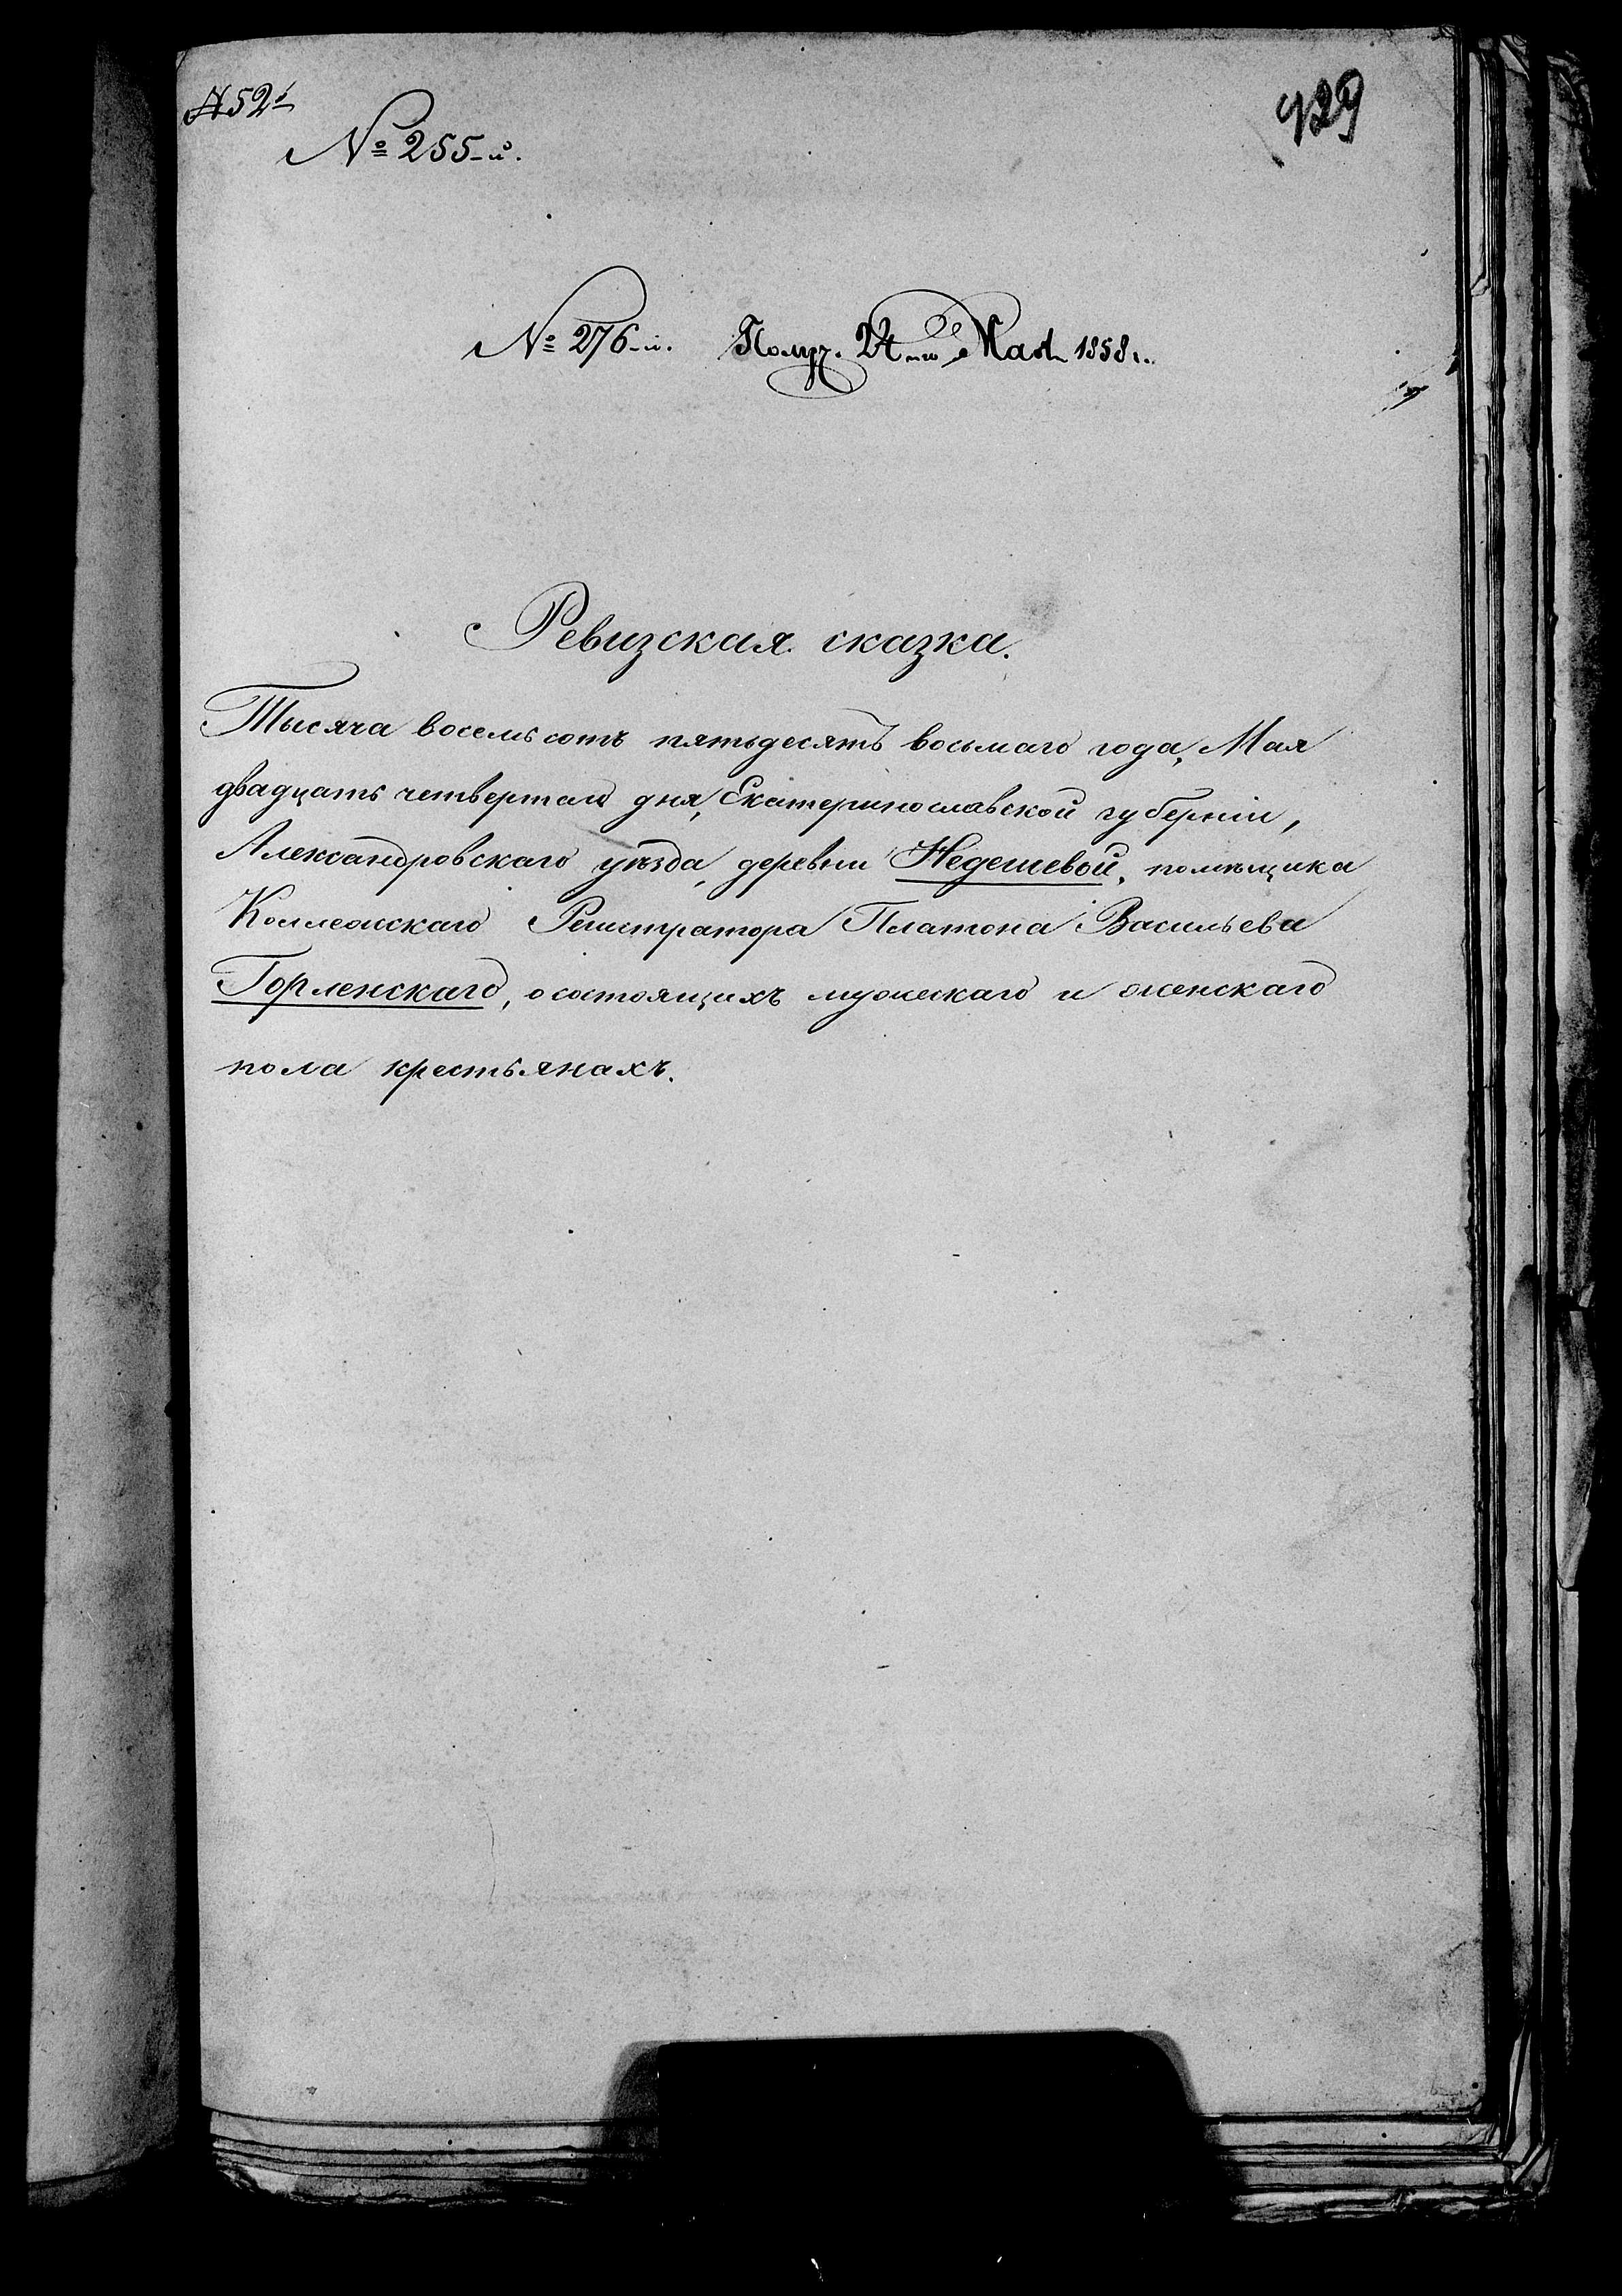 № 255-й.
929
№ 276-й. Получ. 24-го Мая 1858 г.
Ревизская сказка.
Тысяча восемьсотъ пятьдесятъ восьмаго года, Мая
двадцать четвертаго дня, Екатеринославской губерніи,
Александровскаго уѣзда, деревни Недешевой, помѣщика
Коллежскаго Регистратора Платона Васильева
Горленскаго, о состоящихъ мужескаго и женскаго
пола крестьянахъ.